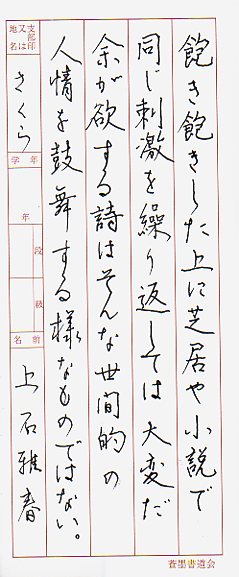 飽き飽きした上に芝居や小説で
同じ刺激を繰り返しては大変だ
余が欲する詩はそんな世間的の
人情を鼓舞する様なものではない。
支部印又は地名
さくら
学年
年
段
級
名前
上石雅春
蒼墨書道会